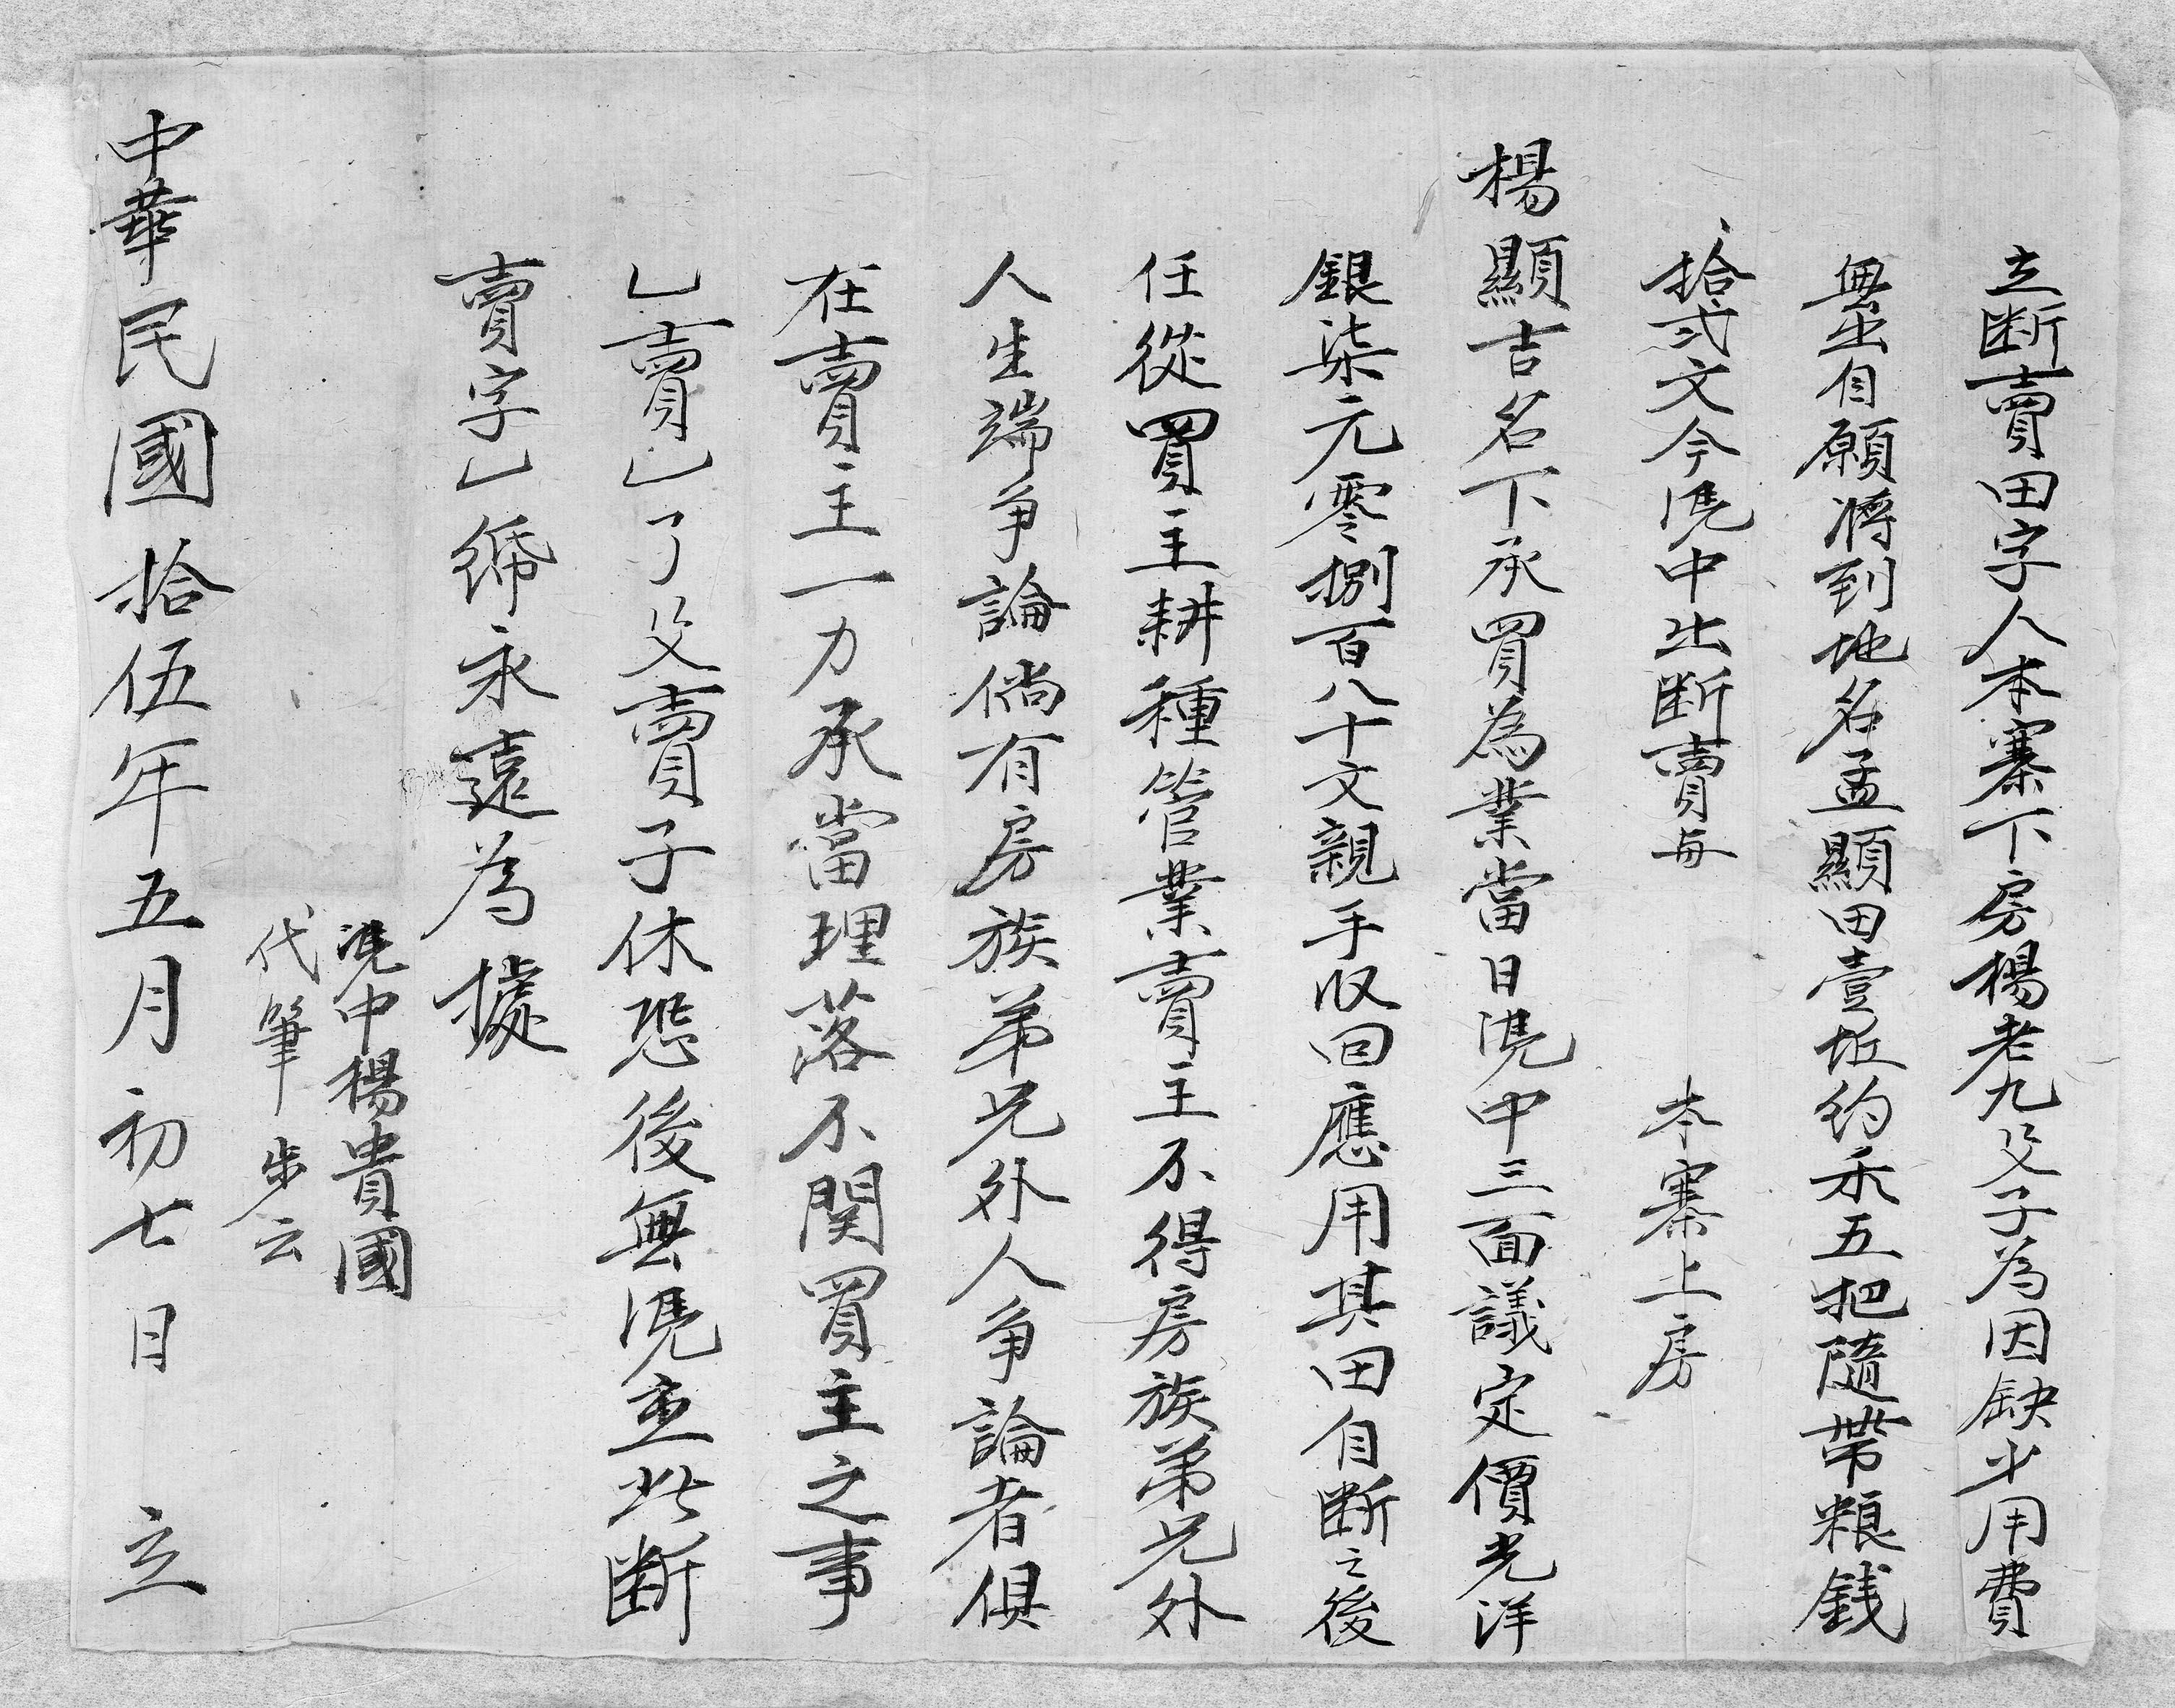 立断賣田字人本寨下房楊老九父子為因缺少用費
無出自願將到地名孟顯田壹坵約禾五把隨帶粮銭
拾弍文今凴中出断賣与 本寨上房
楊顯吉名下承買為業當日凴中三面議定價光洋
銀柒元零捌百八十文親手収回應用其田自断之後
任從買主耕種管業賣主不得房族弟兄外
人生端争論倘有房族弟兄外人争論者俱
在賣主一力承當理落不関買主之事
乚賣乚了父賣子休恐後無凴立此断
賣字乚 永遠為據
凴中楊貴國
代筆 步云
中華民國拾伍年五月初七日 立